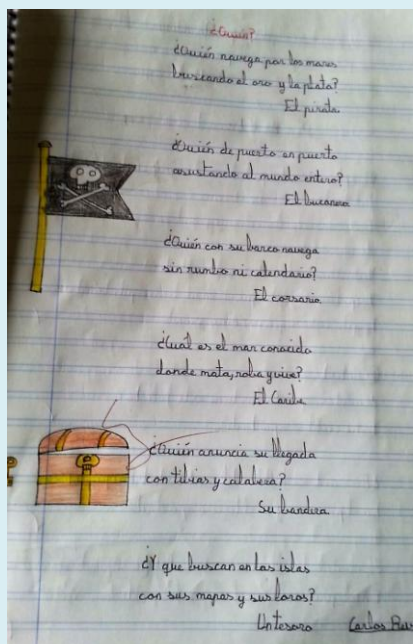 ¿Quién?
¿Quién navega por los mares
buscando el oro y la plata?
El pirata.
¿Quién de puerto en puerto
asustando al mundo entero?
El bucanero
¿Quién con su barco navega
sin rumbo ni calendario?
El corsario.
¿Cuál es el mar conocido
donde mata, roba y vive?
El Caribe
¿Quién anuncia su llegada
con tibias y calabera?
Su bandera.
¿Y que buscan en las islas
con sus mapas y sus loros?
Un tesoro
Carlos